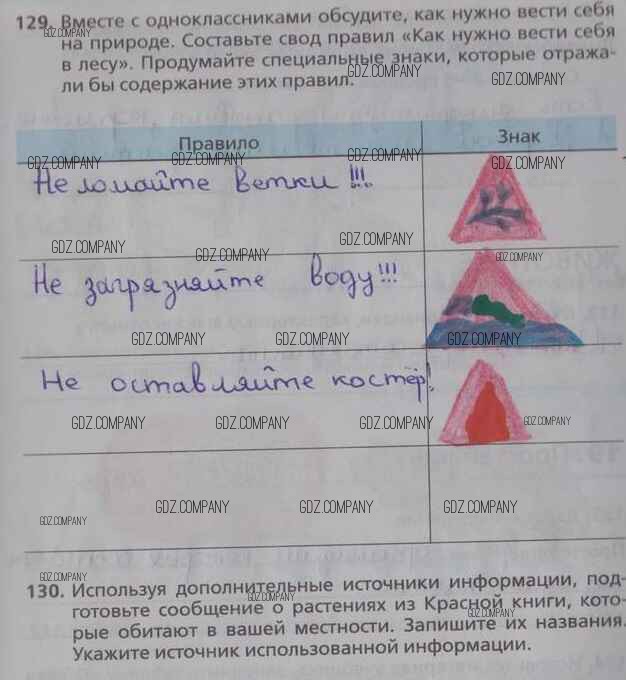 129. Вместе с одноклассниками обсудите, как нужно вести себя
на природе. Составьте свод правил «Как нужно вести себя
в лесу». Продумайте специальные знаки, которые отража-
ли бы содержание этих правил.
GDZ.COMPANY
GDZ.COMPANY
GDZ.COMPANY
Правило
Знак
GDZ.COMPANY
GDZ.COMPANY
GDZ.COMPANY
GDZ.COMPANY
Не ломайте ветки !!!
GDZ.COMPANY
GDZ.COMPANY
GDZ.COMPANY
GDZ.COMPANY
Не загрязняйте воду!!!
GDZ.COMPANY
GDZ.COMPANY
GDZ.COMPANY
GDZ.COMPANY
Не оставляйте костёр!
GDZ.COMPANY
GDZ.COMPANY
GDZ.COMPANY
GDZ.COMPANY
GDZ.COMPANY
GDZ.COMPANY
GDZ.COMPANY
GDZ.COMPANY
GDZ.COMPANY
130. Используя дополнительные источники информации, под-
готовьте сообщение о растениях из Красной книги, кото-
рые обитают в вашей местности. Запишите их названия.
Укажите источник использованной информации.
GDZ.COMPANY
GDZ.COMPANY